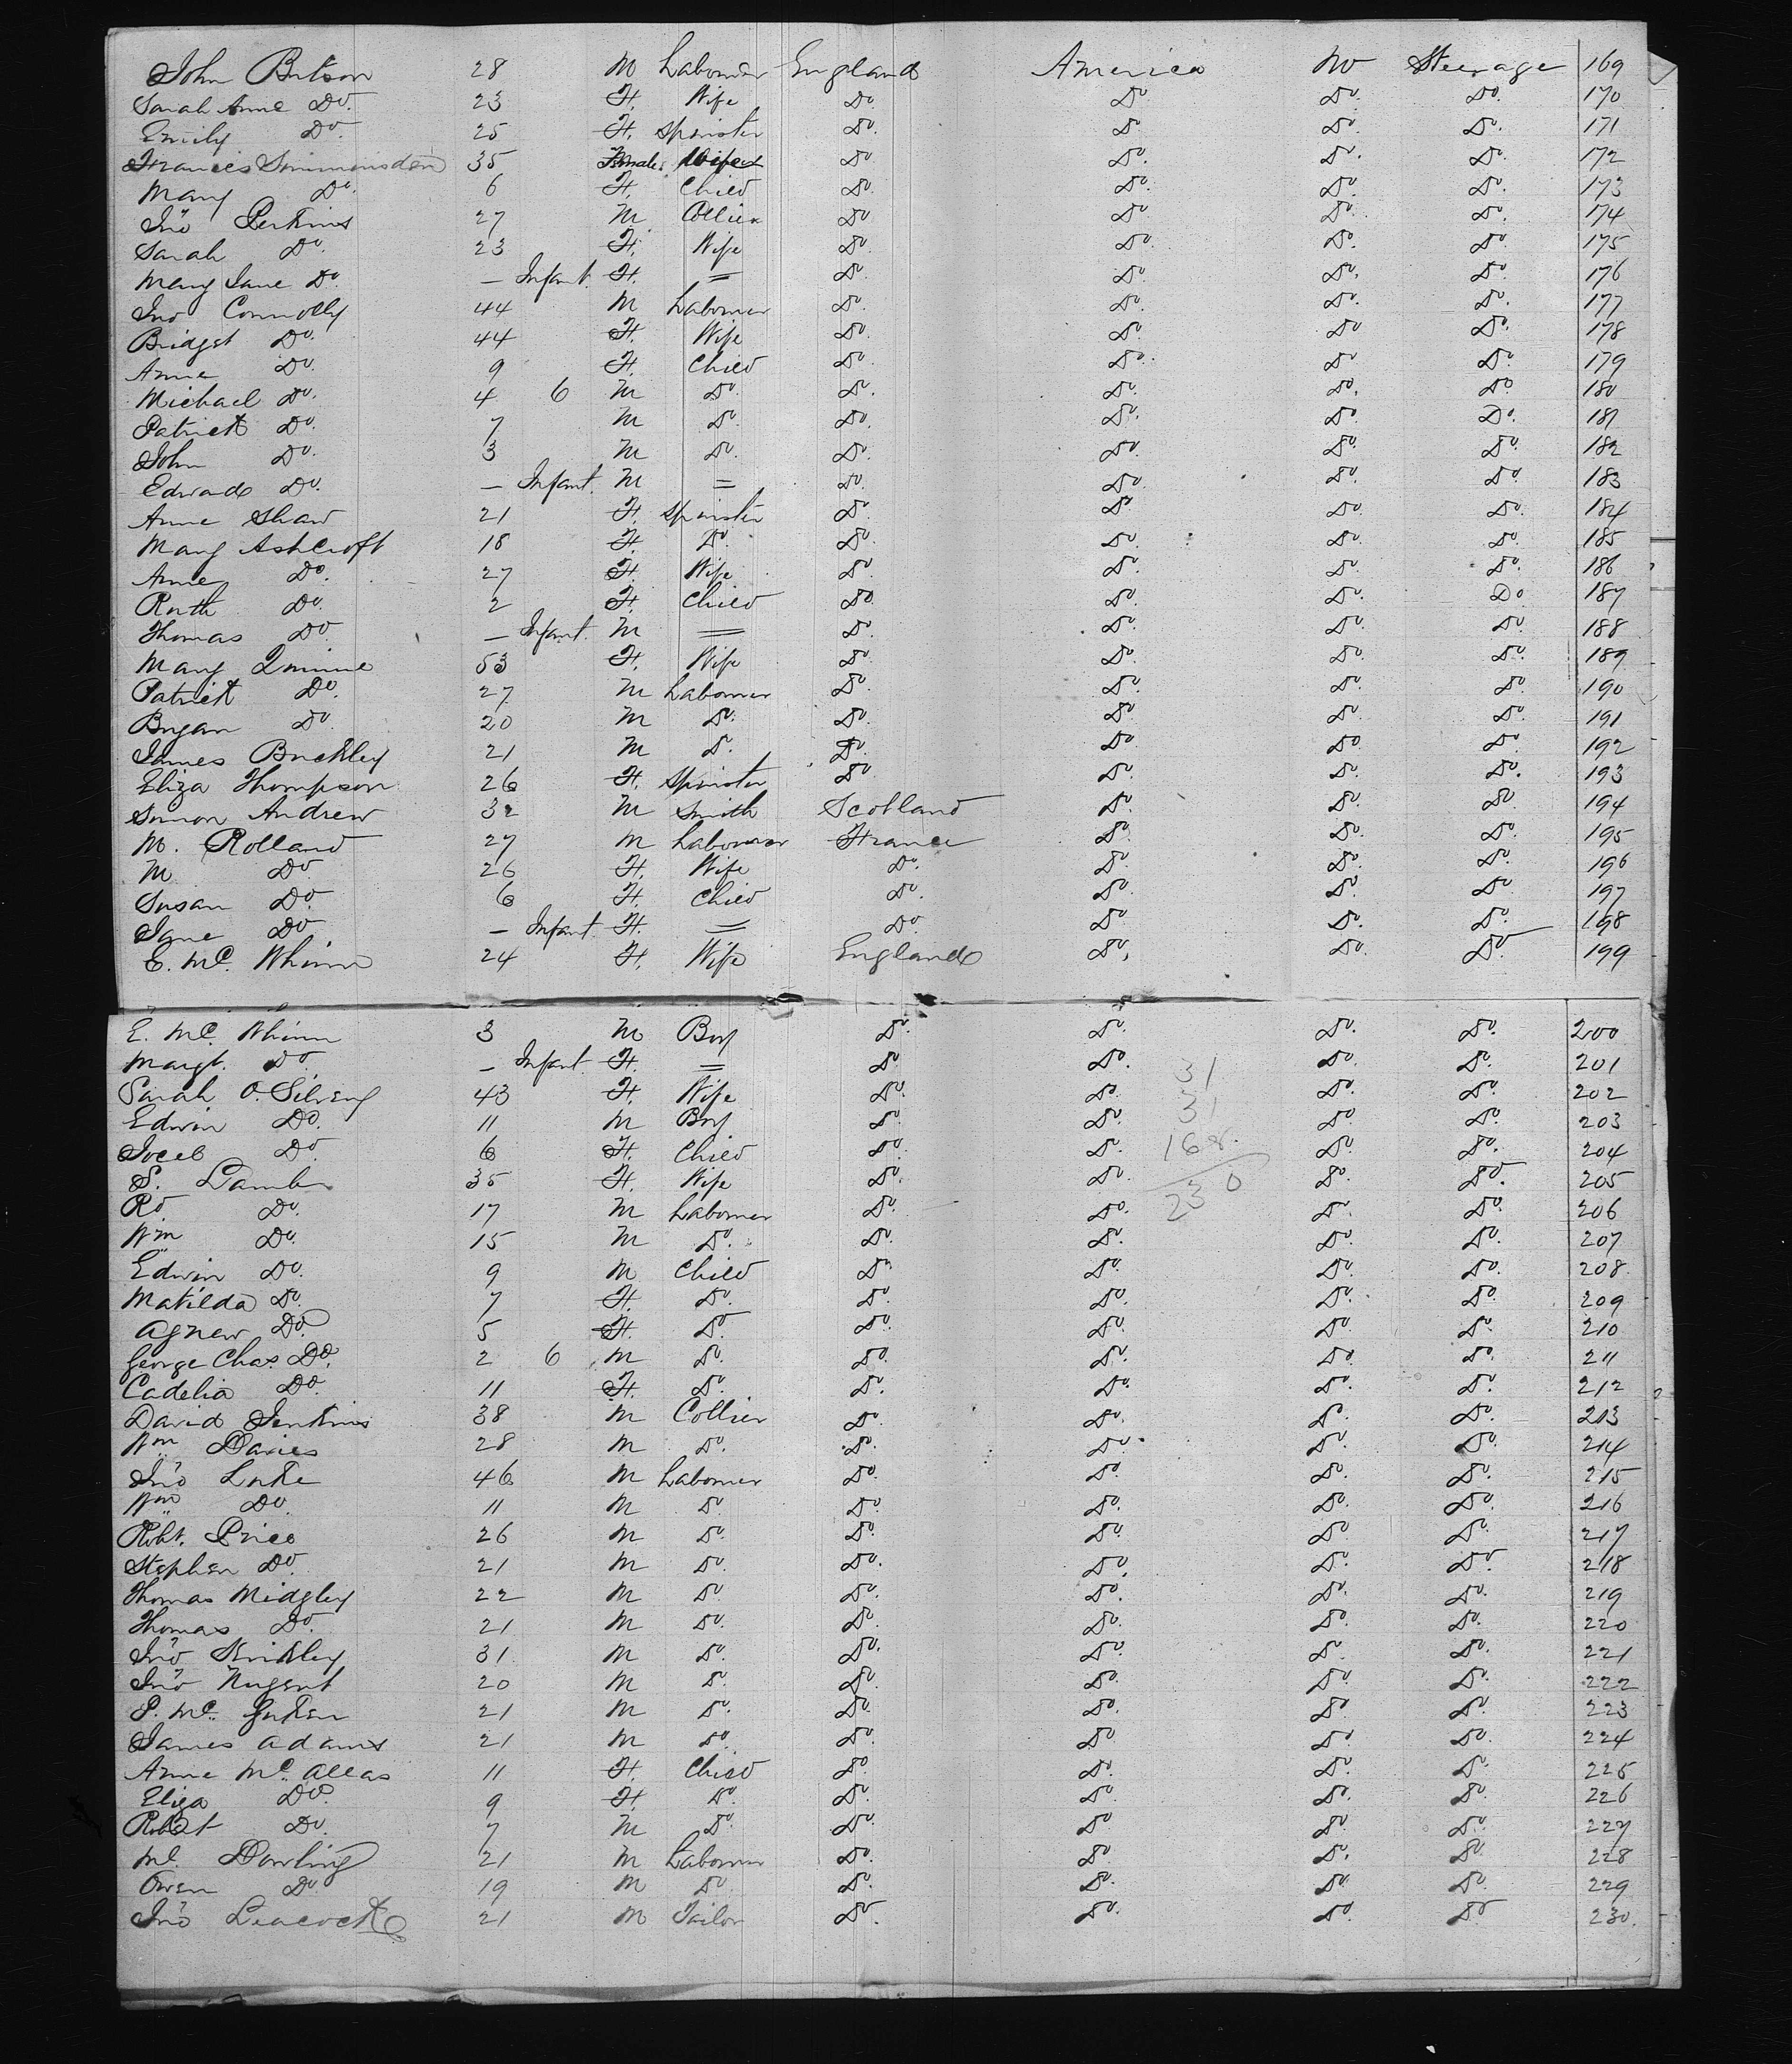 John Butson 28 M Labourer England America No Steerage 169
Sarah Anne Do. 23 F. Wife Do. Do Do. Do. 170
Emily Do. 25 F. Spinster Do. Do Do. Do. 171
Francis 35 Female Wife Do Do. Do. Do. 172
Mary Do. 6 F. Child Do. Do. Do. Do. 173
Jno Perkins 27 M Collier Do Do Do. Do. 174
Sarah Do. 23 F. Wife Do. Do. Do. Do. 175
Mary Jane Do. — Infant. F. = Do. Do. Do. Do. 176
Jno Connolly 44 M Labourer Do. Do. Do. Do. 177
Bridget Do. 44 F. Wife Do. Do. Do Do. 178
Anne Do. 9 F. Child Do. Do. Do Do. 179
Michael Do. 4 6 M Do. Do. Do. Do. Do 180
Patrick Do. 7 M Do. Do. Do. Do. Do. 181
John Do. 3 M Do. Do. Do. Do. Do. 182
Edward Do. — Infant. M = Do. Do. Do. Do. 183
Anne Shaw 21 F. Spinster Do. Do Do. Do. 184
Mary Ashcroft 18 F. Do. Do. Do. Do. Do. 185
Anne Do. 27 F. Wife Do. Do. Do. Do. 186
Ruth Do. 2 F. Child Do Do. Do. Do 187
Thomas Do. — Infant. M = Do. Do. Do. Do. 188
Mary Quinne 53 F. Wife Do. Do. Do. Do. 189
Patrick Do. 27 M Labourer Do. Do. Do. Do. 190
Bryan Do 20 M Do. Do. Do. Do. Do. 191
James Buckley 21 M Do. Do. Do Do Do. 192
Eliza Thompson 26 F. Spinster Do Do. Do. Do. 193
Simon Andrew 32 M Smith Scotland Do. Do. Do. 194
M. Rolland 27 M Labourer France Do. Do. Do. 195
M Do. 26 F. Wife Do. Do. Do. Do. 196
Susan Do. 6 F. Child Do. Do. Do. Do 197
Jane Do — Infant. F. = Do. Do Do. Do. 198
E. Mc. Whinn 24 F. Wife England Do. Do. Do. 199
E. Mc. Whinn 3 M Boy Do. Do. Do. Do. 200
Margt. Do. — Infant F. = Do. Do. Do. Do. 201
31
Sarah O.Silvey 43 F. Wife Do. Do. Do. Do. 202
31
Edwin Do. 11 M Boy Do. Do. Do. Do. 203
168.
Do. 6 F. Child Do. Do. Do. Do. 204
S. Lamb 35 F. Wife Do. Do. Do. Do. 205
230
Rd Do. 17 M Labourer Do. Do. Do. Do. 206
Wm Do. 15 M Do. Do. Do. Do. Do. 207
Edwin Do. 9 M Child Do. Do. Do. Do. 208
Matilda Do. 7 F. Do. Do. Do. Do. Do. 209
Agnew Do. 5 F. Do. Do. Do. Do. Do. 210
George Chas. Do. 2 6 M Do. Do. Do. Do. Do. 211
Cadelia Do. 11 F. Do. Do. Do. Do. Do. 212
David Jenkins 38 M Collier Do. Do. Do. Do. 213
Wm Davies 28 M Do. Do. Do. Do. Do. 214
Jno Luke 46 M Labourer Do. Do. Do. Do. 215
Wm Do. 11 M Do Do. Do. Do. Do. 216
Robt. Price 26 M Do. Do. Do. Do. Do. 217
Stephen Do. 21 M Do. Do. Do. Do. Do 218
Thomas Midgley 22 M Do. Do. Do. Do. Do. 219
Thomas Do. 21 M Do. Do. Do. Do. Do. 220
Jno 31 M Do. Do. Do. Do. Do. 221
Jno Nugent 20 M Do. Do. Do. Do. Do. 222
P. Mc. 21 M Do. Do. Do. Do. Do. 223
James Adams 21 M Do. Do. Do. Do. Do. 224
Anne Mc. Allas 11 F. Child Do. Do. Do. Do. 225
Eliza Do. 9 F. Do. Do. Do. Do. Do. 226
Robert Do. 7 M Do. Do. Do. Do. Do. 227
Ml. Dowling 21 M Labourer Do. Do. Do. Do. 228
Owen Do. 19 M Do Do. Do. Do. Do. 229
Jno Leacock 21 M Tailor Do. Do. Do. Do 230.